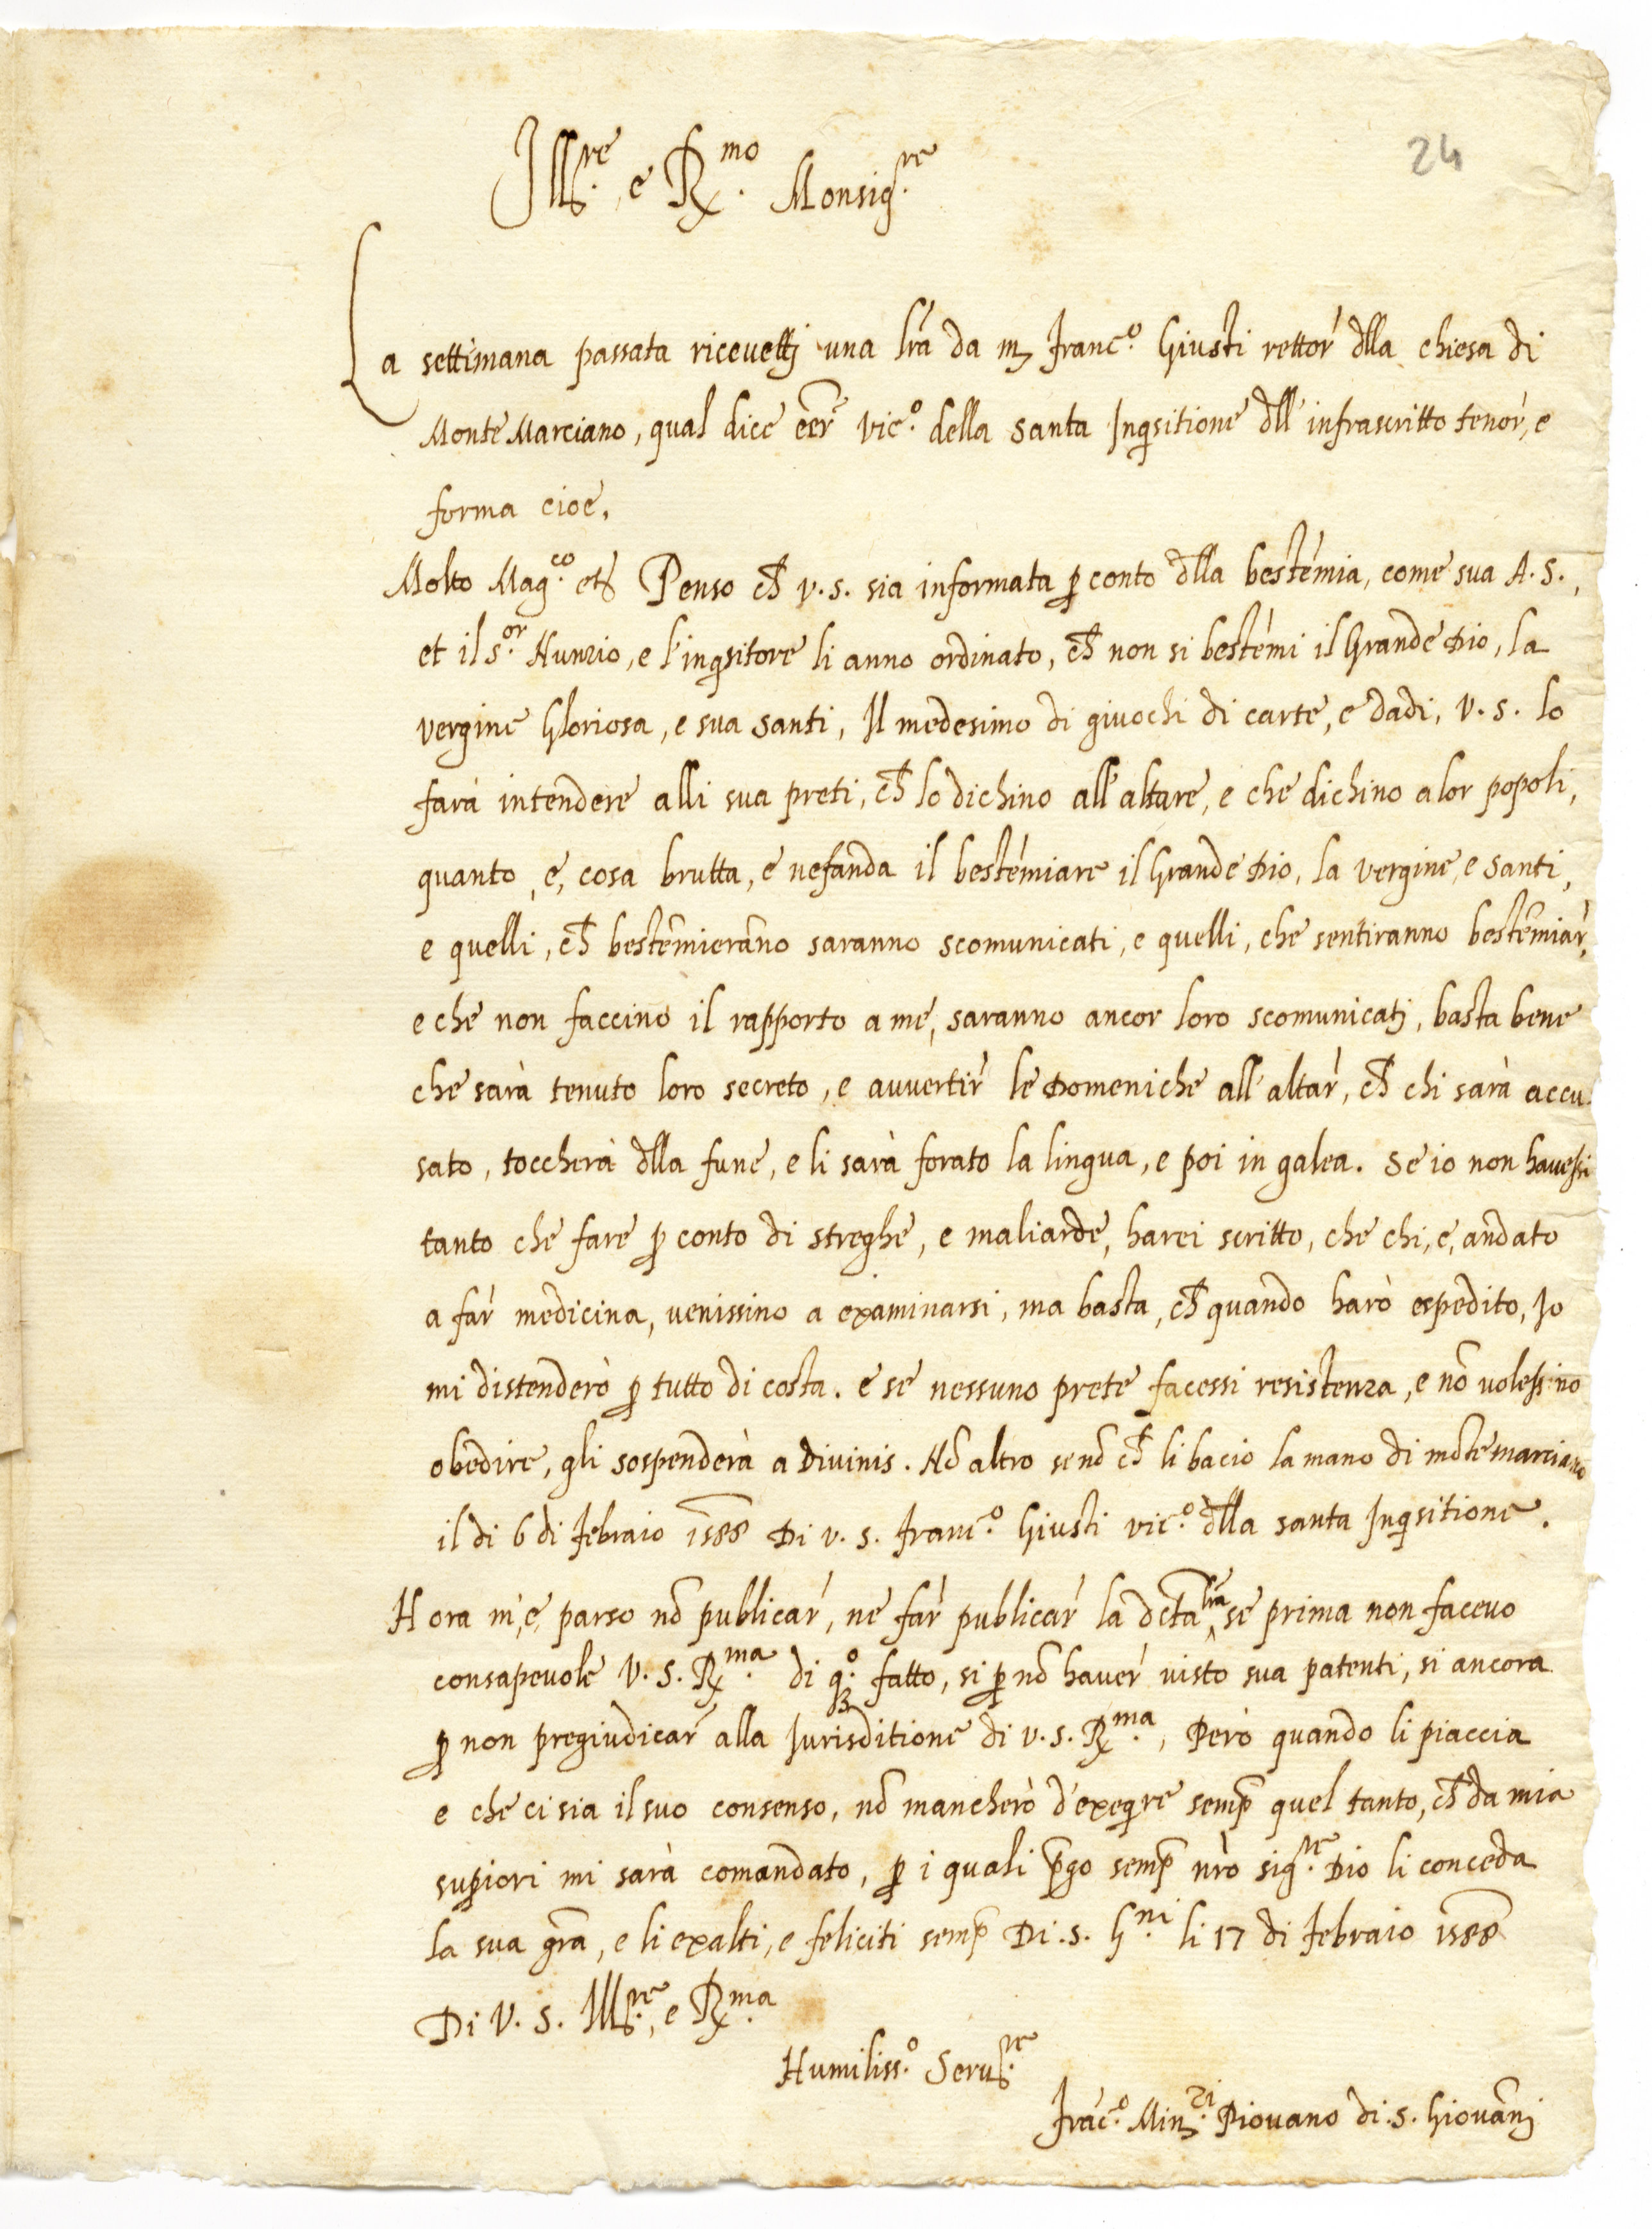 24
Ill.re e R.mo Monsig.re
La settimana passata ricevettj una lra da m Franc.o Giusti rettor dlla chiesa di
Monte Marciano, qual dice eer vic.o della santa Inqsitione dll' infrascritto tenor, e
forma cioe,
Molto Mag.co etc Penso ch v.s. sia informata p conto dlla bestemia, come sua A.S.,
et il s.or Nunzio, e l'inqsitore li anno ordinato, ch non si bestemi il Grande Dio, la
vergine Gloriosa, e sua santi, Il medesimo di givochi di carte, e dadi, V.S. lo
farà intendere alli sua preti, ch lo dichino all'altare, e che dichino a lor popoli,
quanto, e, cosa brutta, e nefanda il bestemiare il Grande Dio, la vergine, e santi,
e quelli, ch bestemierano saranno scomunicati, e quelli, che sentiranno bestemiar,
e che non faccino il rapporto a me, saranno ancor loro scomunicatj, basta bene
che sarà tenuto loro secreto, e auvertir le Domeniche all'altar, ch chi sarà accu-
sato, toccherà dlla fune, e li sarà forato la lingua, e poi in galea. Se io non havessi
tanto che fare p conto di streghe, e maliarde, harei scritto, che chi, e, andato
a far medicina, venissino a examinarsi, ma basta, ch quando harò espedito, Io
mi distenderò p tutto di costa. e se nessuno prete facessi resistenza, e nō volessino
obedire, gli sospenderà a Divinis. Nō altro se nō ch li bacio la mano di mōte marciano
il di 6 di Febraio 1588 Di v.s. Franc.o Giusti vic.o dlla santa Inqsitione.
Hora m'e, parso nō publicar, ne far publicar la dcta lra se prima non facevo
consapevole V.S.R.ma di q.o fatto, si p nō haver visto sua patenti, si ancora
p non pregiudicar alla Jurisditione di v.s.R.ma, Però quando li piaccia
e che ci sia il suo consenso, nō mancherò d'exeqre semp quel tanto, ch da mia
supiori mi sarà comandato, p i quali pgo semp nro sig.re Dio li conceda
la sua gra, e li exalti, e feliciti semp Di.S.G.ni li 17 di Febraio 1588
Di V.S. Ill.re, e R.ma
Humiliss.o Serv.re
Frāc.o Min.zi Piovano di.S.Giovānj